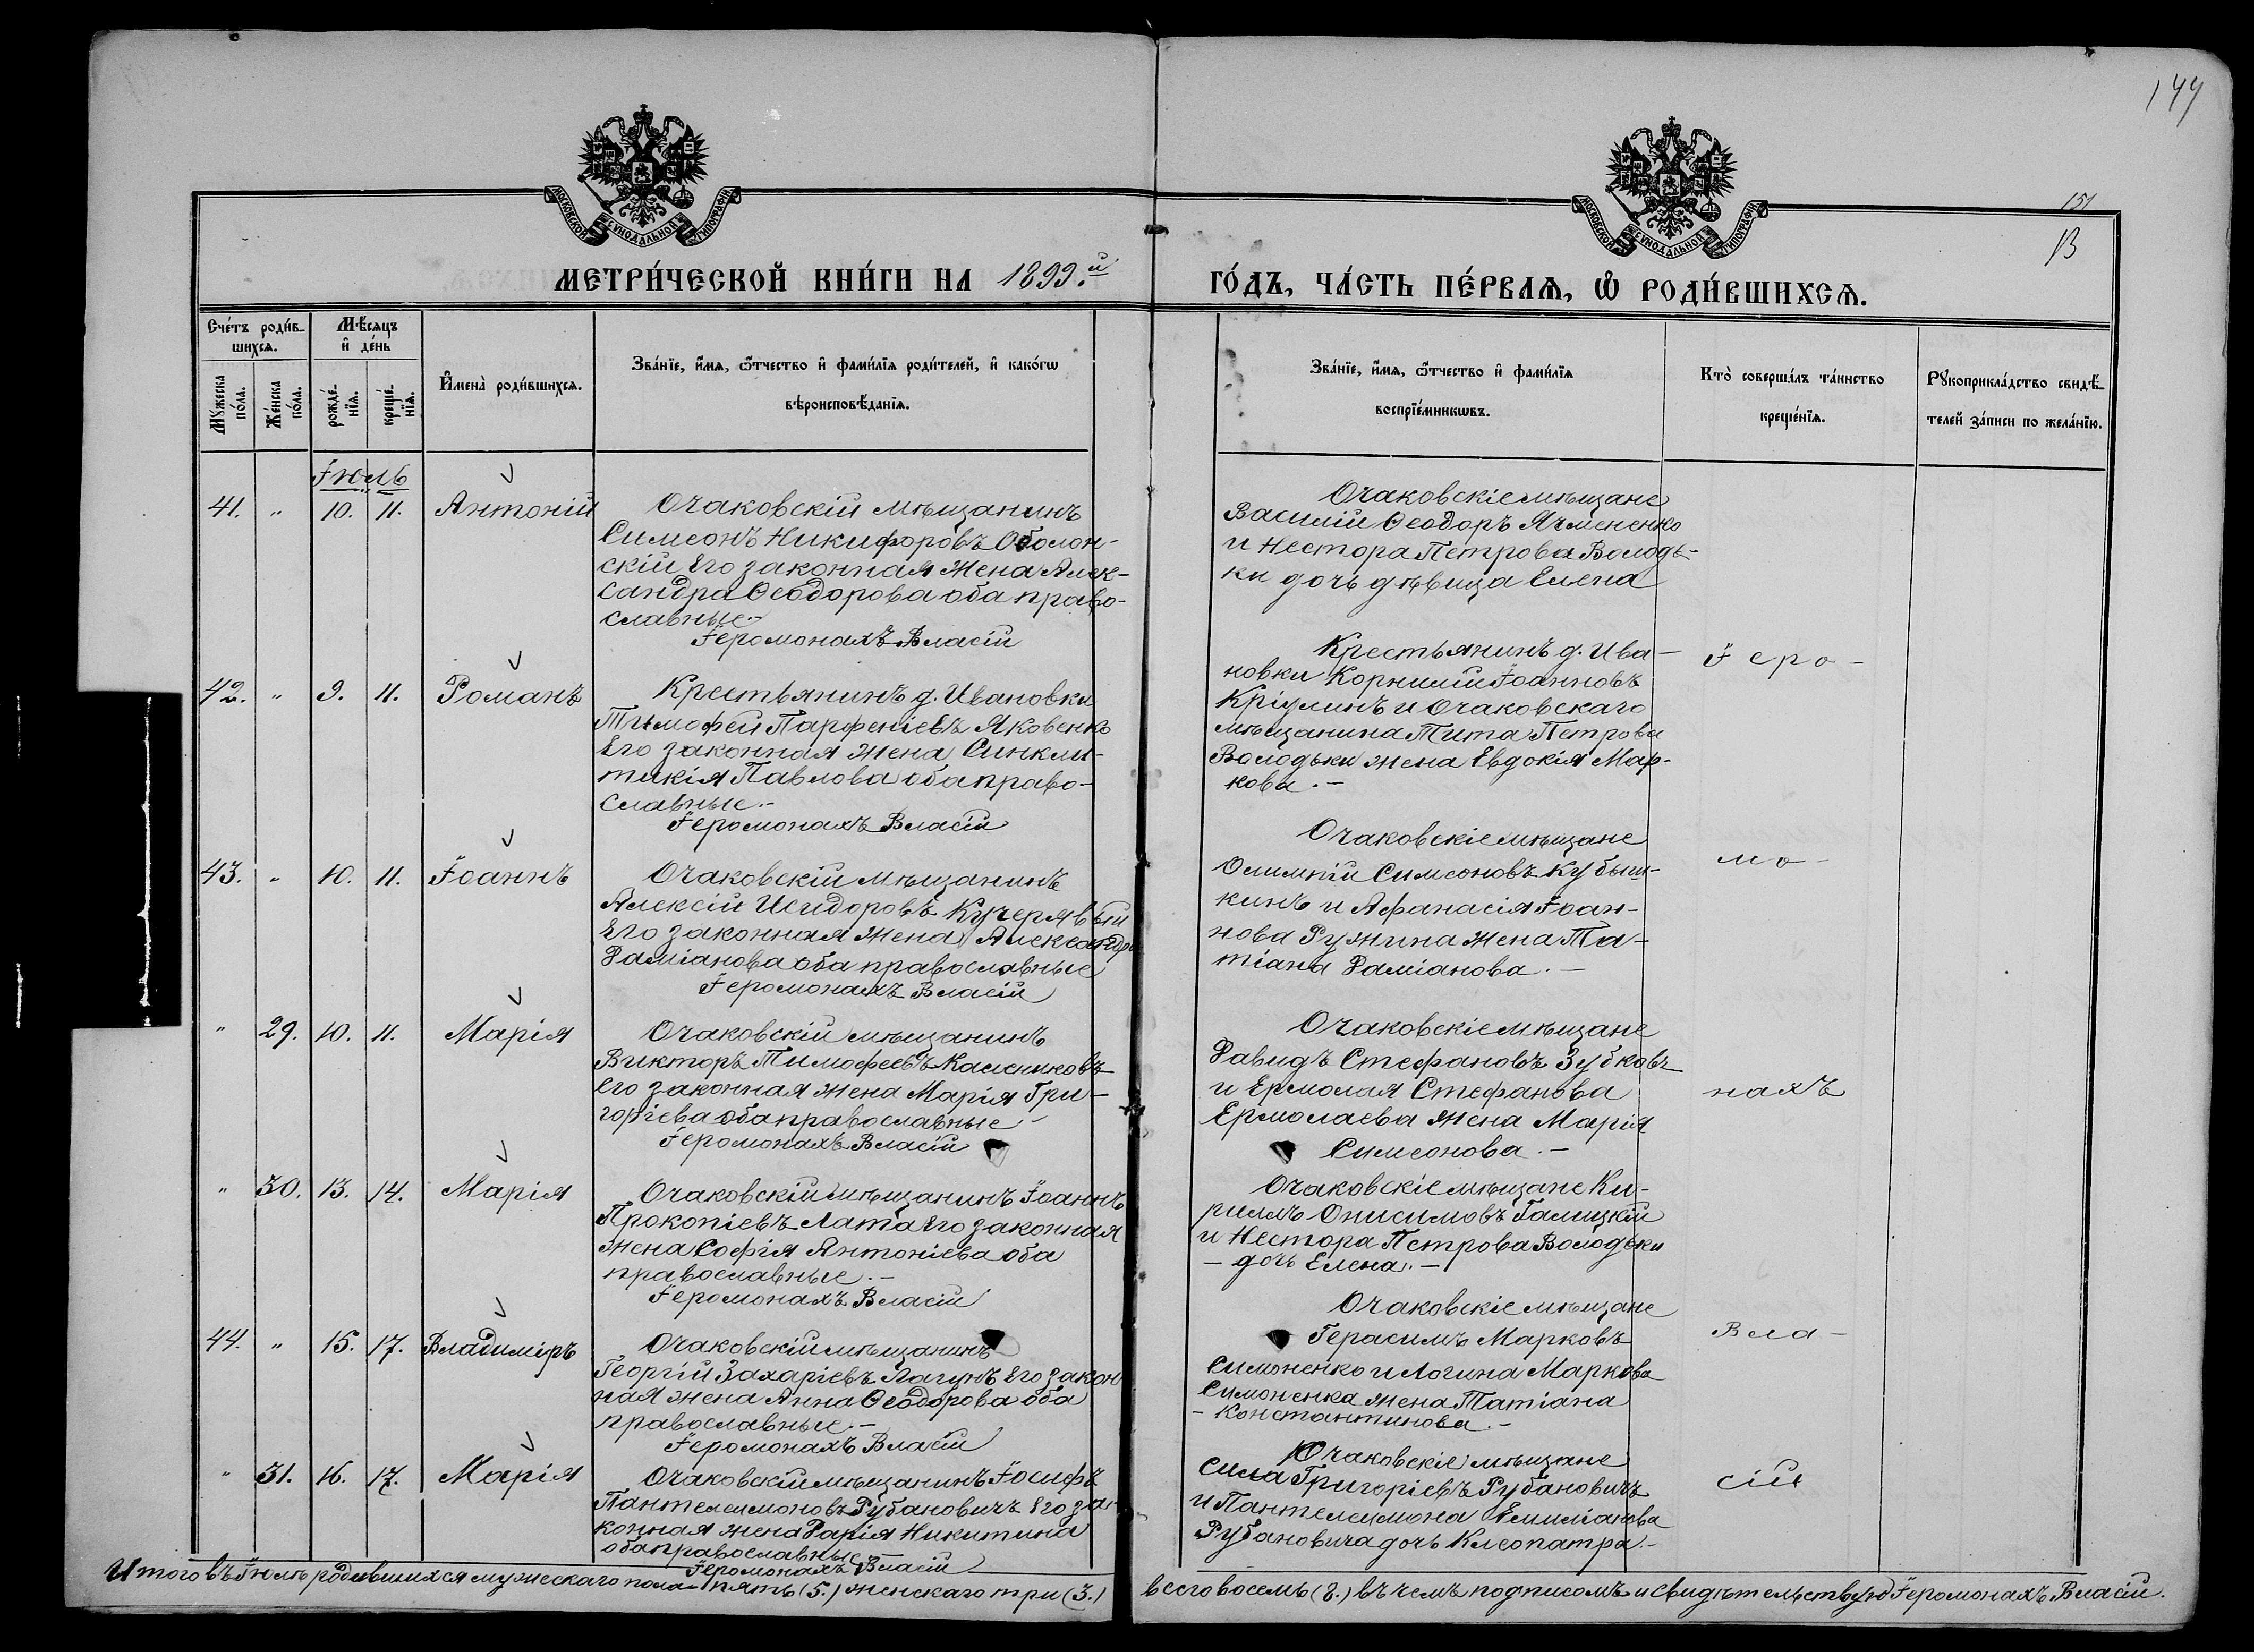 144
151
13
МОСКОВСКОЙ СѴНОДАЛЬНОЙ ТИПОГРАФІИ
МОСКОВСКОЙ СѴНОДАЛЬНОЙ ТИПОГРАФІИ
МЕТРИ́ЧЕСКОЙ КНИ́ГИ НА 1899.й
ГО́ДЪ, ЧА́СТЬ ПЕ́РВАѦ, Ѡ҆ РОДИ́ВШИХСѦ.
Сче́тъ роди́в-
шихсѧ.
Мѣ́сѧцъ
и҆ де́нь
Мꙋ́жеска
по́ла.
Же́нска
по́ла.
рожде́-
нїѧ.
креще́-
нїѧ.
И҆мена̀ роди́вшихсѧ.
Зва́нїе, и҆́мѧ, ѻ҆́тчество и҆ фами́лїѧ роди́телей, и҆ како́гѡ
вѣроисповѣ́данїѧ.
Зва́нїе, и҆́мѧ, ѻ҆́тчество и҆ фами́лїѧ
воспрїе́мникѡвъ.
Кто̀ соверша́лъ та́инство
креще́нїѧ.
Рꙋкоприкла́дство свидѣ́-
телей за́писи по жела́нїю.
Іюль
41. " 10. 11. Антоній
Очаковскій мѣщанинъ
Симеонъ Никифоровъ Оболон-
скій Его законная жена Алек-
сандра Ѳеодорова оба право-
славные.-
Іеромонахъ Власій
Очаковскіе мѣщане
Василій Ѳеодоръ Ячмененко
и Нестора Петрова Володь-
ки дочь дѣвица Елена
42. " 9. 11. Романъ
Крестьянинъ д. Ивановки
Тимофей Парфеніевъ Яковенко
Его законная жена Синкли-
тикія Павлова оба право-
славные.-
Іеромонахъ Власій
Крестьянинъ д. Ива-
новки Корнилій Іоанновъ
и Очаковскаго
мѣщанина Тита Петрова
Володьки жена Евдокія Мар-
кова.-
Іеро-
43. " 10. 11. Іоаннъ
Очаковскій мѣщанинъ
Алексій Исидоровъ Кучерявый
Его законная жена Александра
Даміанова оба православные
Іеромонахъ Власій
Очаковскіе мѣщане
Олимпій Симеоновъ Кубыш-
кинъ и Афанасія Іоан-
нова Ружина жена Та-
тіана Даміанова.-
мо-
" 29. 10. 11. Марія
Очаковскій мѣщанинъ
Викторъ Тимофеевъ Калениковъ
Его законная жена Марія Гри-
горіева оба православные-
Іеромонахъ Власій
Очаковскіе мѣщане
Давидъ Стефановъ Зубковъ
и Ермолая Стефанова
Ермолаева жена Марія
Симеонова.-
нахъ
" 30. 13. 14. Марія
Очаковскій мѣщанинъ Іоаннъ
Прокопіевъ Лата Его законная
жена Софія Антоніева оба
православные.-
Іеромонахъ Власій
Очаковскіе мѣщане Ки-
риллъ Онисимовъ Галицкій
и Нестора Петрова Володьки
- дочь Елена.-
44. " 15. 17. Владиміръ
Очаковскій мѣщанинъ
Георгій Захаріевъ Лагунъ Его закон
ная жена Анна Ѳеодорова оба
православные.-
Іеромонахъ Власій
Очаковскіе мѣщане
Герасимъ Марковъ
Симоненко и Логина Маркова
Симоненка жена Татіана
- Константинова.-
Вла-
" 31. 16. 17. Марія
Очаковскій мѣщанинъ Іосифъ
Пантелеимоновъ Рубановичъ Его за-
конная жена Дарія Никитина
оба православные
Іеромонахъ Власій
Очаковскіе мѣщане
Сила Григоріевъ Рубановичъ
и Пантелеимона Емиліанова
Рубановича дочь Клеопатра.-
сій
Итого въ Іюлѣ родившихся мужескаго пола пять (5.) женскаго три (3.)
всего восемь (8.) въ чемъ подписомъ и свидѣтельствую Іеромонахъ Власій.